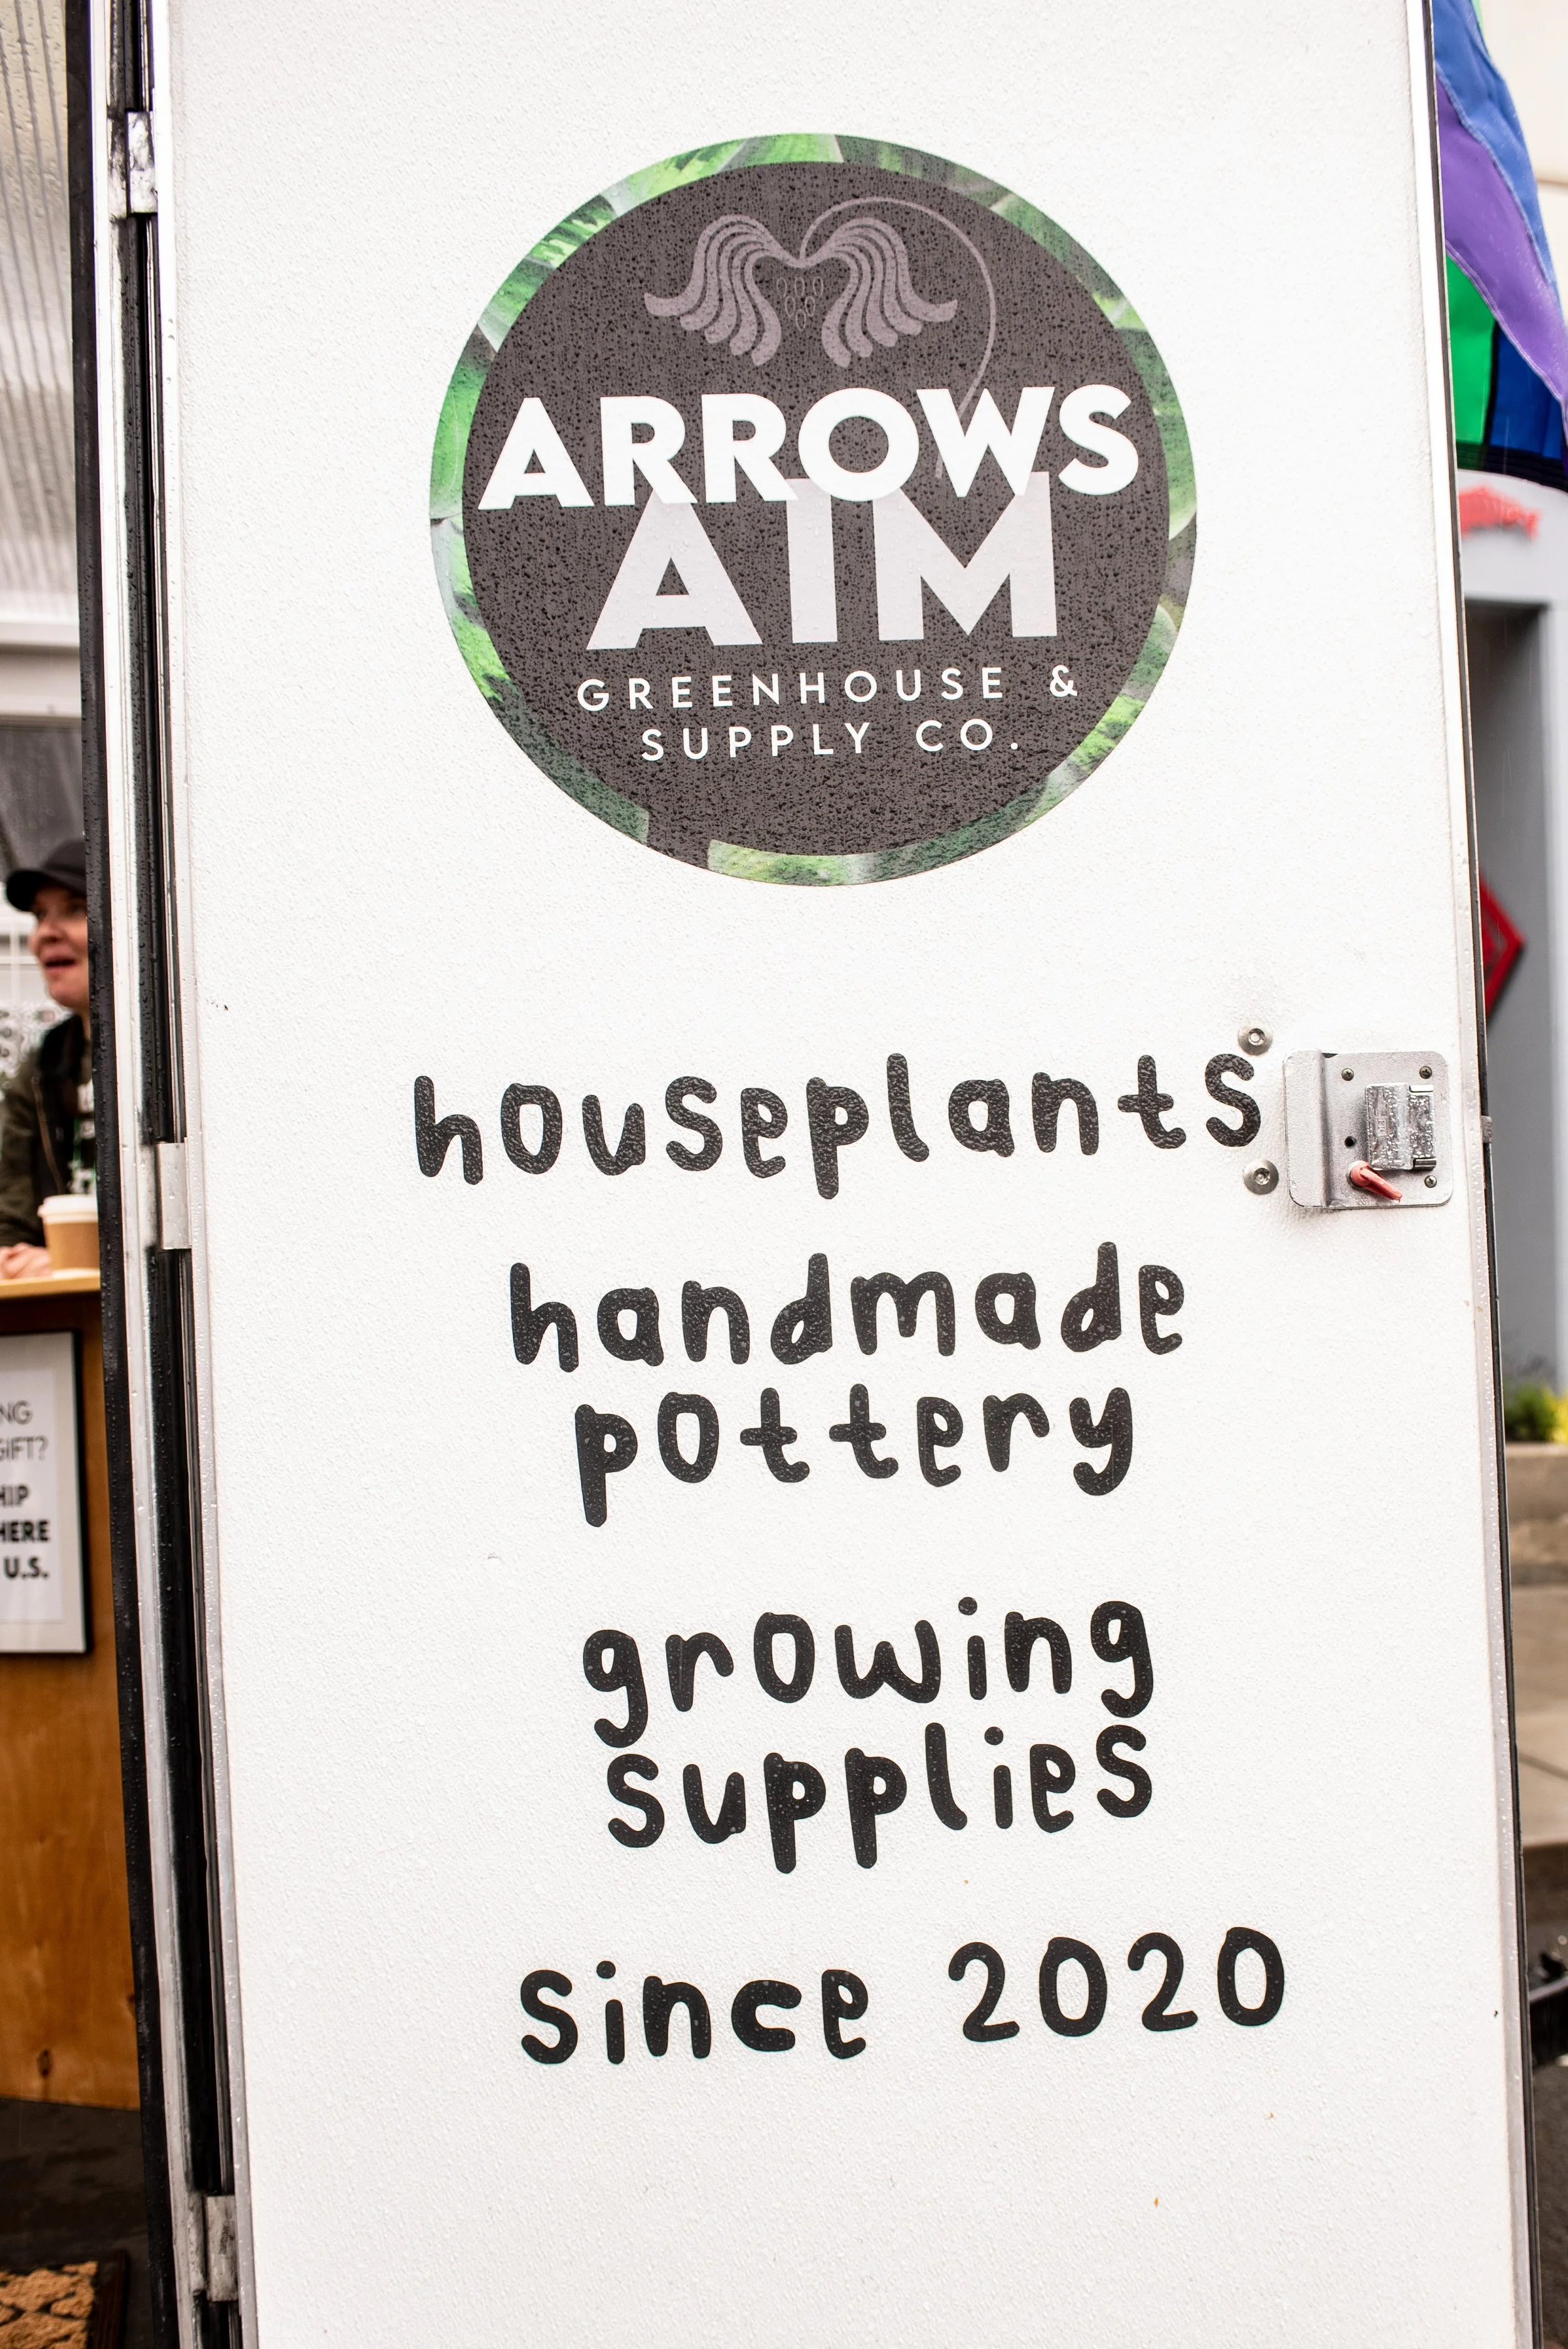 ARROWS
AIM
GREENHOUSE &
SUPPLY CO.
houseplants
handmade
pottery
growing
supplies
since 2020
GIFT?
HERE
U.S.